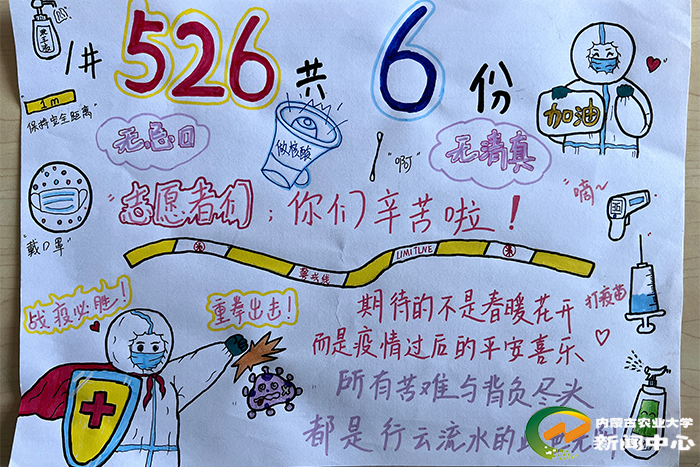 1# 526 共 6 份
洗手液
1m
"保持安全距离"
无忌口
做核酸
"啊"
无清真
加油
"戴口罩"
"志愿者们：你们辛苦啦！
"嘀~"
警戒线
打疫苗
战疫必胜！
重拳出击！
期待的不是春暖花开
而是疫情过后的平安喜乐
所有苦难与背负尽头
都是行云流水的
内蒙古农业大学
新闻中心